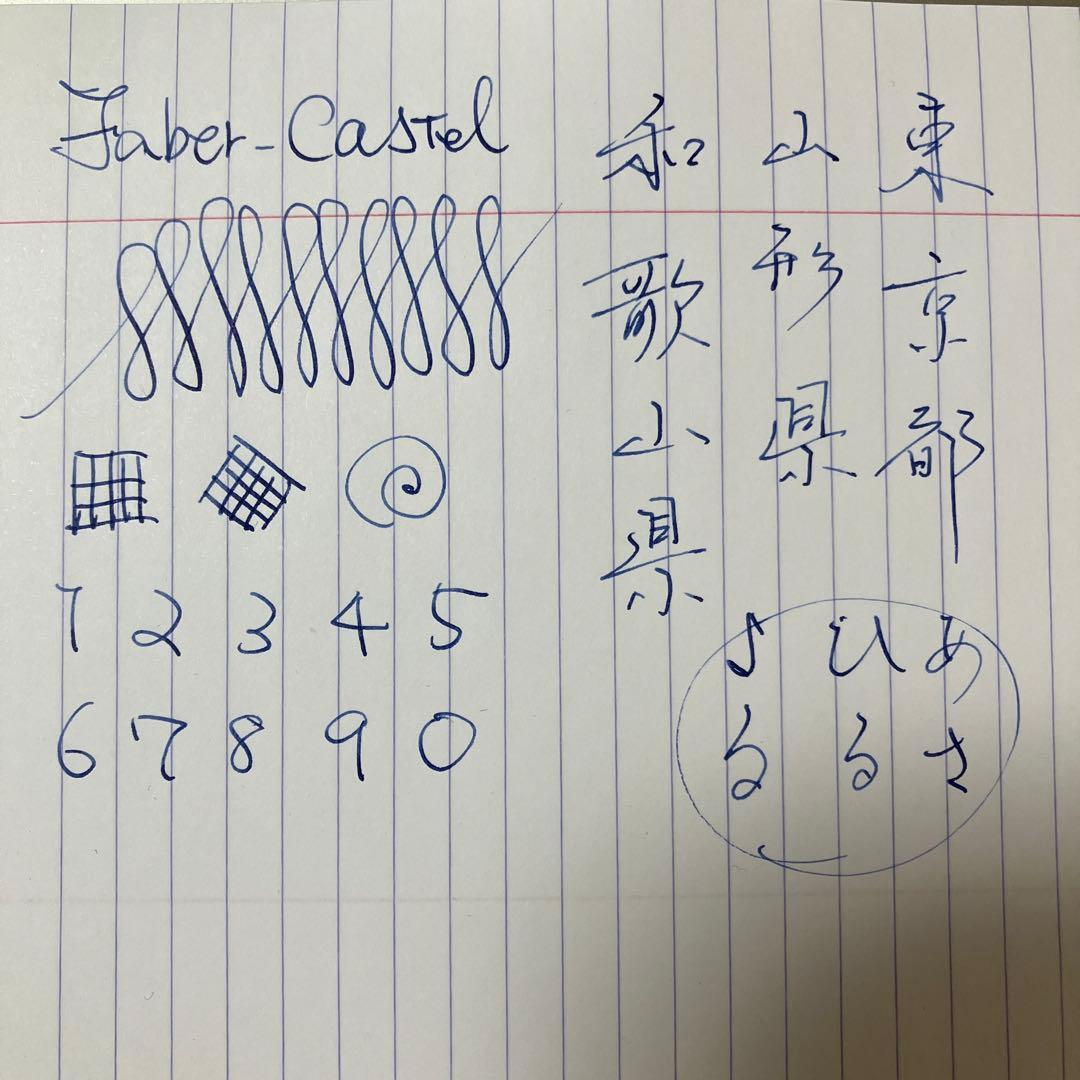 Faber-Castel
1 2 3 4 5
6 7 8 9 0
東京都
山形県
和歌山県
あさ
ひる
よる